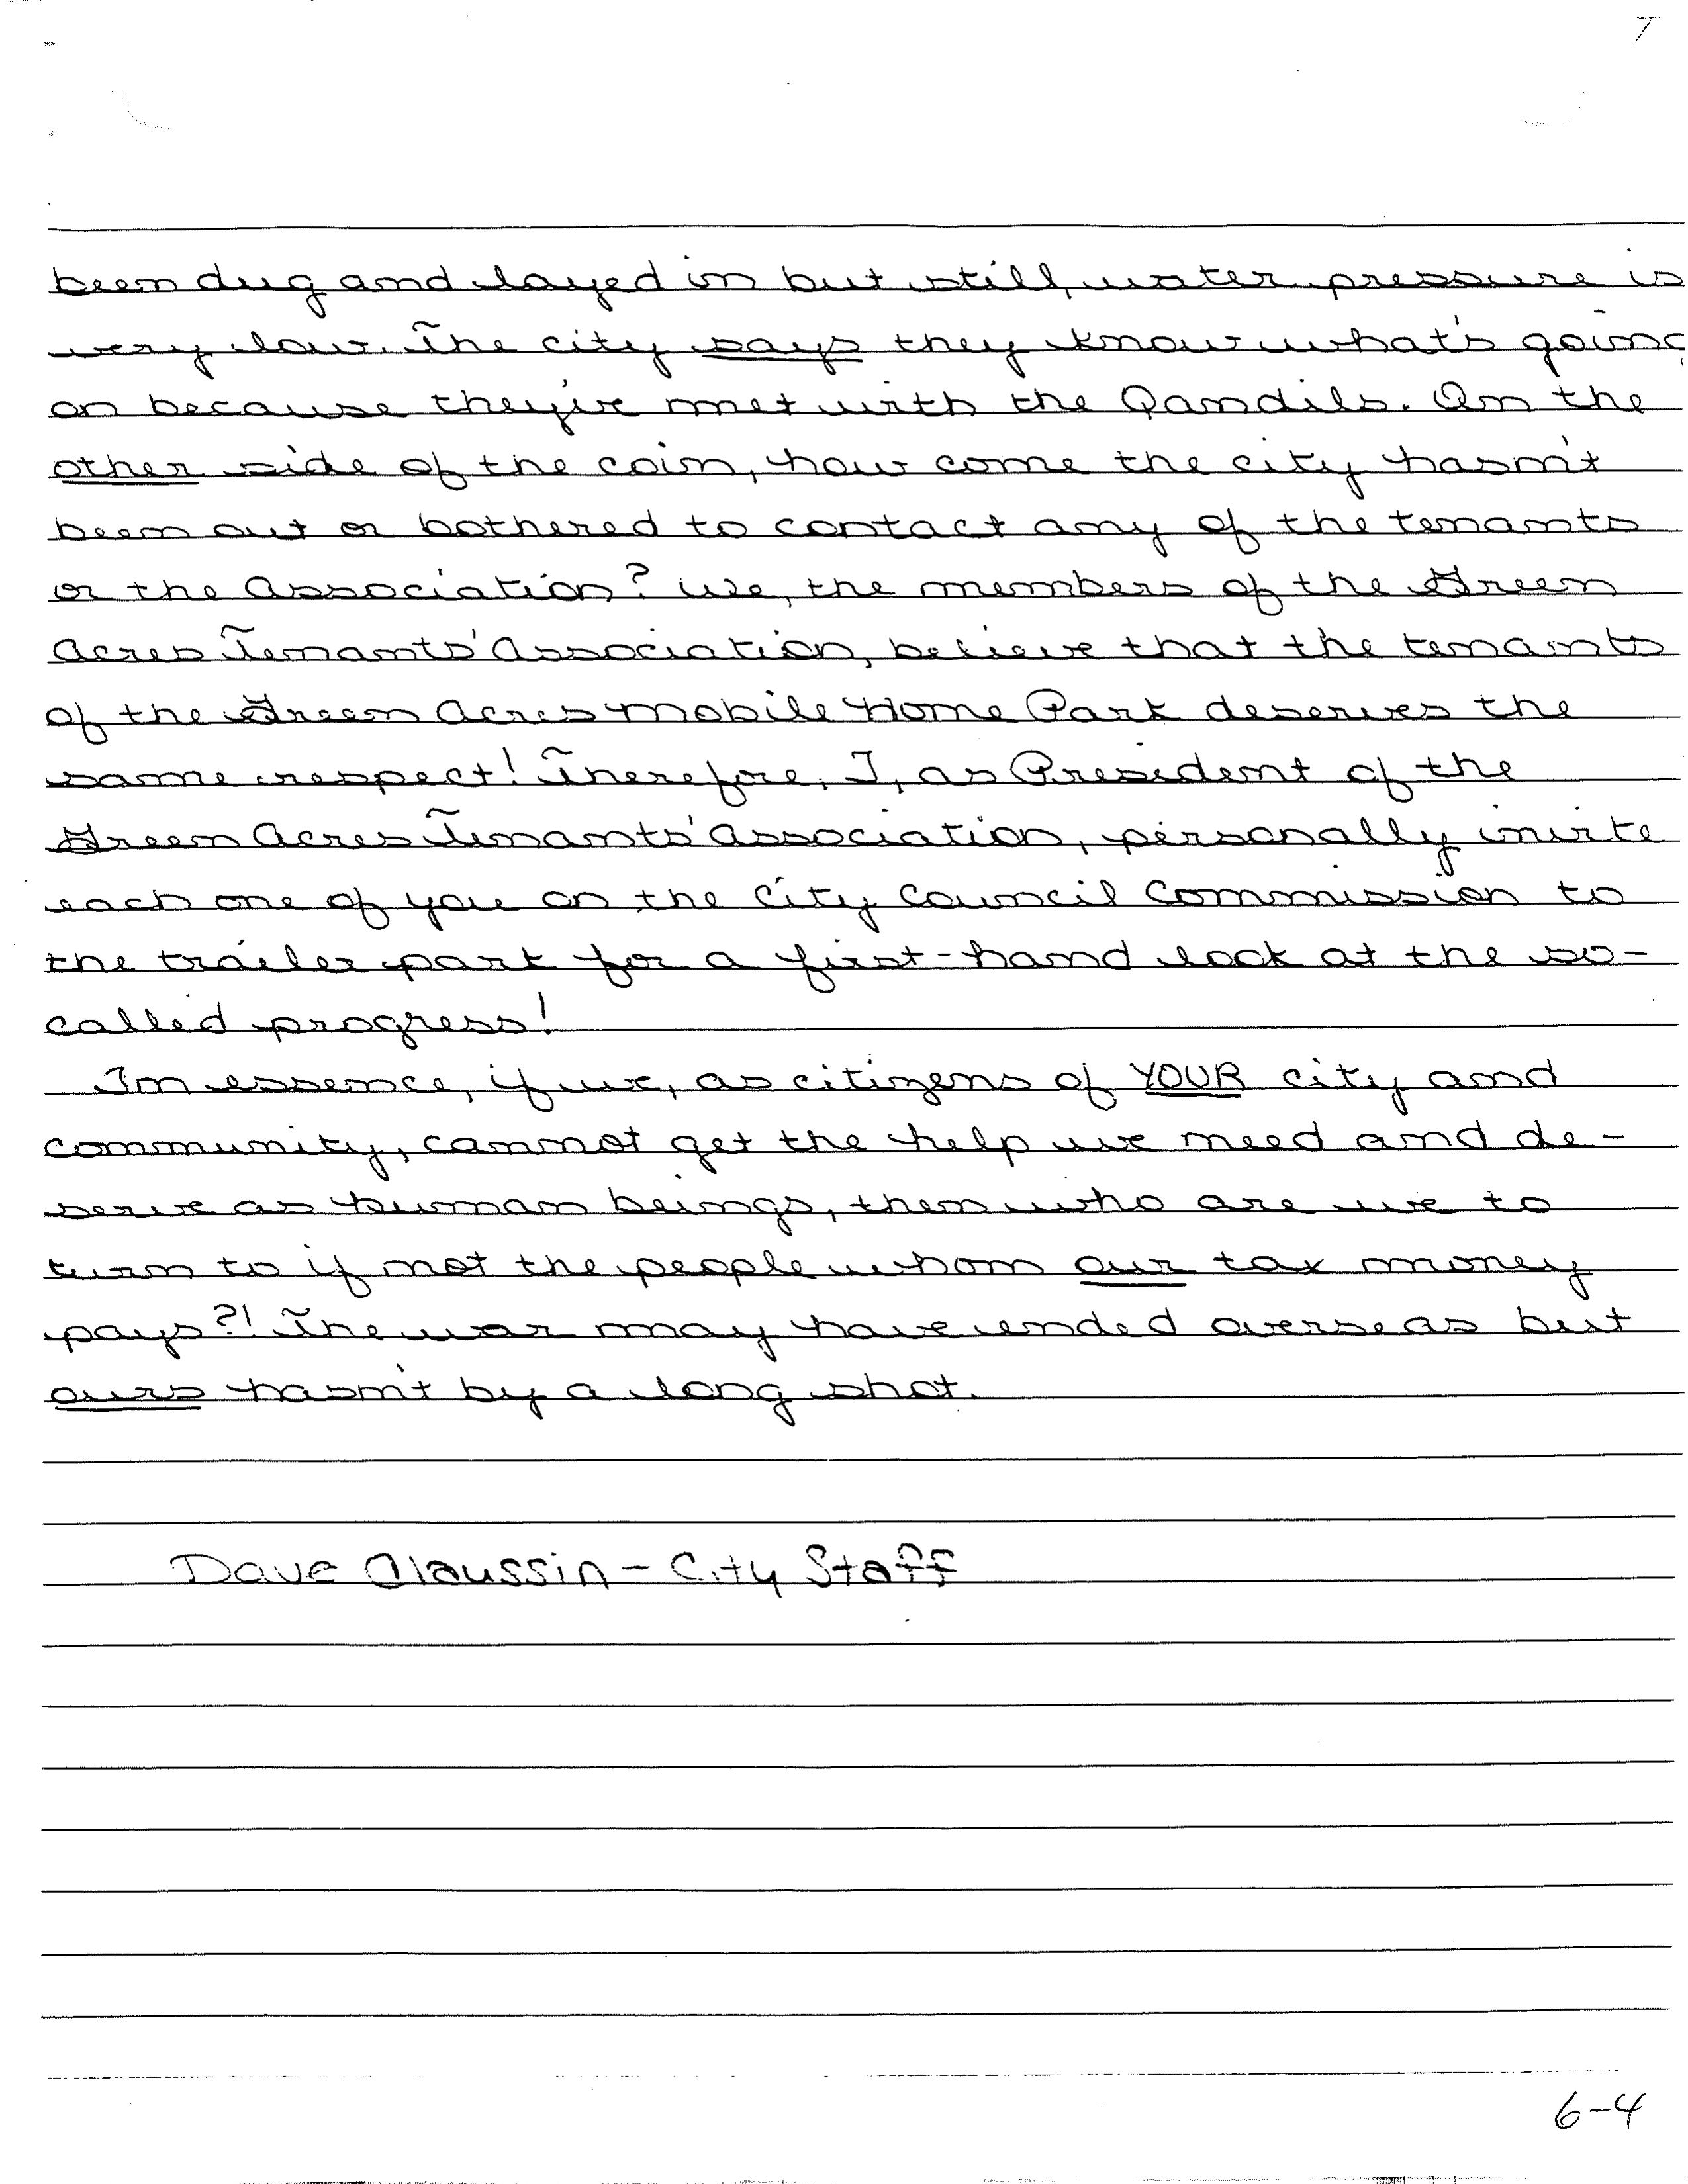 7
been dug and layed in but still, water pressure is
very low. The city says they know what's going
on because they've met with the Qandils. On the
other side of the coin, how come the city hasn't
been out or bothered to contact any of the tenants
or the Association? We, the members of the Green
Acres Tenants' Association, believe that the tenants
of the Green Acres Mobile Home Park deserves the
same respect! Therefore, I, as President of the
Green Acres Tenants' Association, personally invite
each one of you on the City Council Commission to
the trailer park for a first-hand look at the so-
called progress!
In essence, if we, as citizens of YOUR city and
community, cannot get the help we need and de-
serve as human beings, then who are we to
turn to if not the people whom our tax money
pays?! The war may have ended overseas but
ours hasn't by a long shot.
Dave Claussin - City Staff
6-4